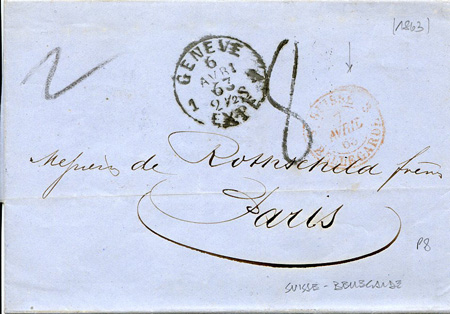 [1863]
2
GENEVE
6
AVRI
63
2 1/2 S
1 EXPED
8
SUISSE
7
AVRIL
63
BELLEGARDE
Messieurs de Rothschild frères
Paris
P8
SUISSE - BELLEGARDE